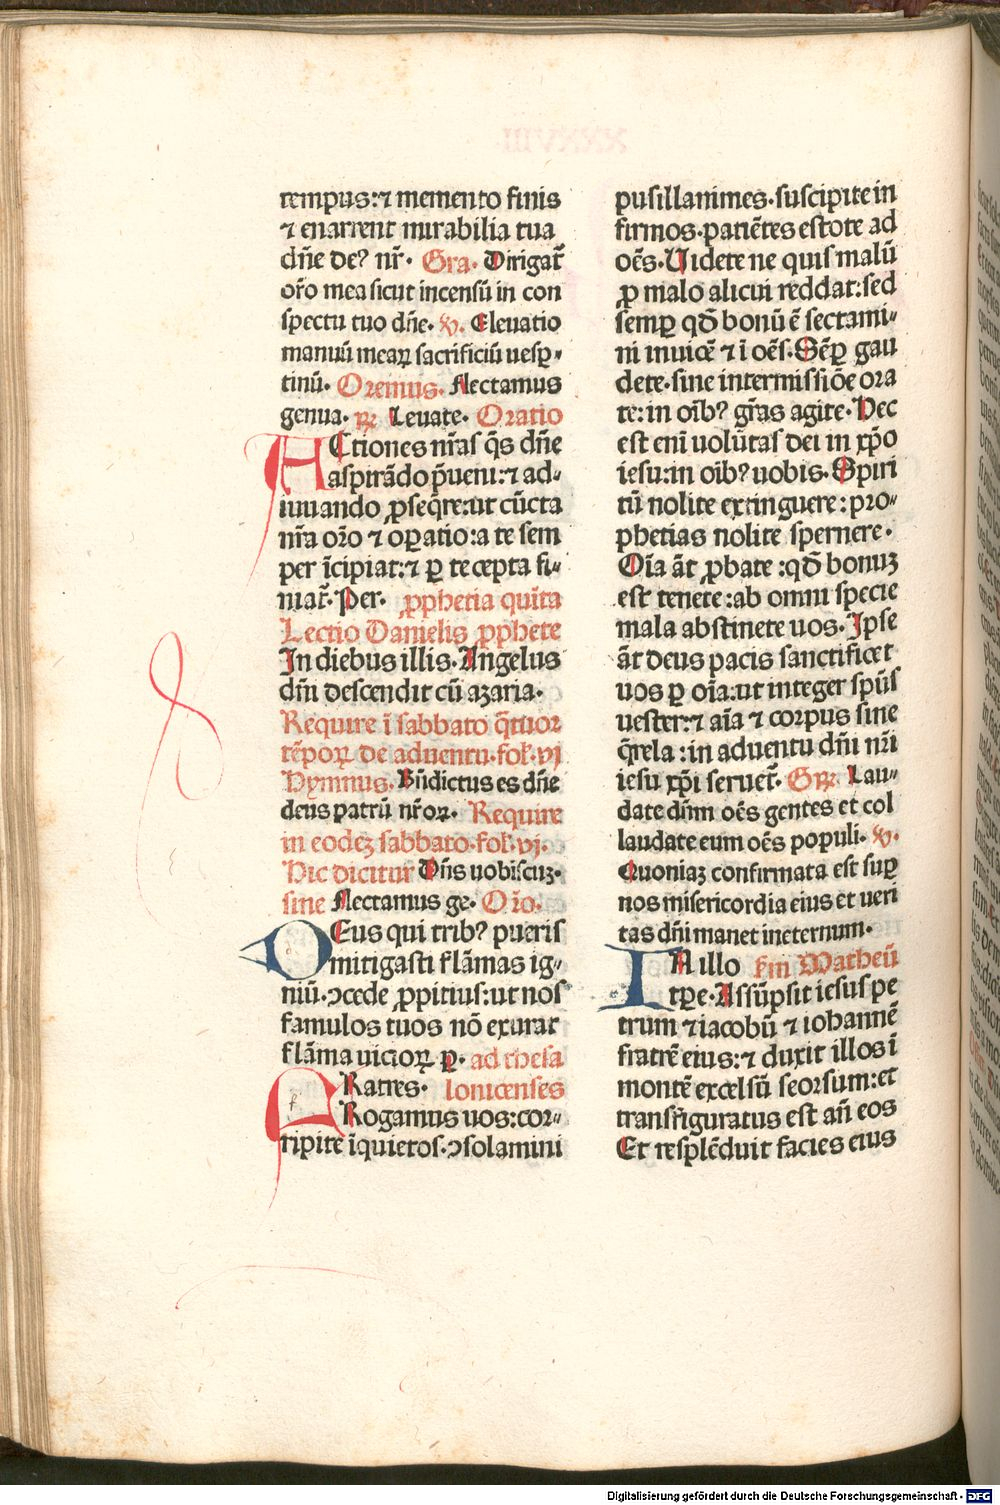 tempus:⁊ memento finis
⁊ enarrent mirabilia tua
dñe deꝰ nr̃. Gra. Dirigat᷑
or̃o mea sicut incensũ in con
spectu tuo dñe. ꝟ. Eleuatio
manuũ meaꝝ sacrificiũ uesꝑ⸗
tinũ. Oremus. Flectamus
genua. ꝶ Leuate. Oratio
ACtiones nr̃as q̃s dñe
aspirãdo p̃ueni:⁊ ad⸗
iuuando ꝓseq̃re:ut cũcta
nr̃a or̃o ⁊ oꝑatio:a te sem
per ĩcipiat:⁊ ꝑ te cepta fi⸗
niat᷑. Per. ꝓphetia quĩta
Lectio Danielis ꝓphete
In diebus illis. Angelus
dñi descendit cũ azaria.
Require ĩ sabbato q̃tuor
tẽpoꝝ de aduentu.fol.vj
Hymnus. Bñdictus es dñe
deus patrũ nr̃oꝝ. Require
in eodeꝫ sabbato.fol.vj.
Hic dicitur Dñs uobiscuꝫ.
sine Flectamus ge. Or̃o.
DEus qui tribꝰ pueris
mitigasti flãmas ig⸗
niũ.ꝯcede ꝓpitius:ut nos
famulos tuos nõ exurat
flãma uicioꝝ ꝑ. ad thesa
FRatres. lonicenses
Rogamus uos:cor⸗
ripite ĩquietos.ꝯsolamini
pusillanimes.suscipite in
firmos.patiẽtes estote ad
oẽs. Uidete ne quis malũ
ꝓ malo alicui reddat:sed
semꝑ qđ bonũ ẽ sectami⸗
ni inuicẽ ⁊ ĩ oẽs. Sẽꝑ gau
dete.sine intermissiõe ora
te:in oĩbꝰ gr̃as agite. Hec
est enĩ uolũtas dei in xp̃o
iesu:in oĩbꝰ uobis. Spiri
tũ nolite extinguere:pro⸗
phetias nolite spernere.
Oĩa ãt ꝓbate:qđ bonuꝫ
est tenete:ab omni specie
mala abstinete uos. Ipse
ãt deus pacis sanctificet
uos ꝑ oĩa:ut integer sp̃ũs
uester:⁊ aĩa ⁊ corpus sine
q̃rela:in aduentu dñi nr̃i
iesu xp̃i seruet᷑. Gꝶ. Lau⸗
date dñm oẽs gentes et col
laudate eum oẽs populi. ꝟ.
Quoniaꝫ confirmata est suꝑ
nos misericordia eius et ueri
tas dñi manet ineternum.
IN illo sm̃ Matheũ
tꝑe. Assũpsit iesus pe
trum ⁊ iacobũ ⁊ iohannẽ
fratrẽ eius:⁊ duxit illos ĩ
montẽ excelsũ seorsum:et
transfiguratus est añ eos
Et resplẽduit facies eius
Digitalisierung gefördert durch die Deutsche Forschungsgemeinschaft - DFG